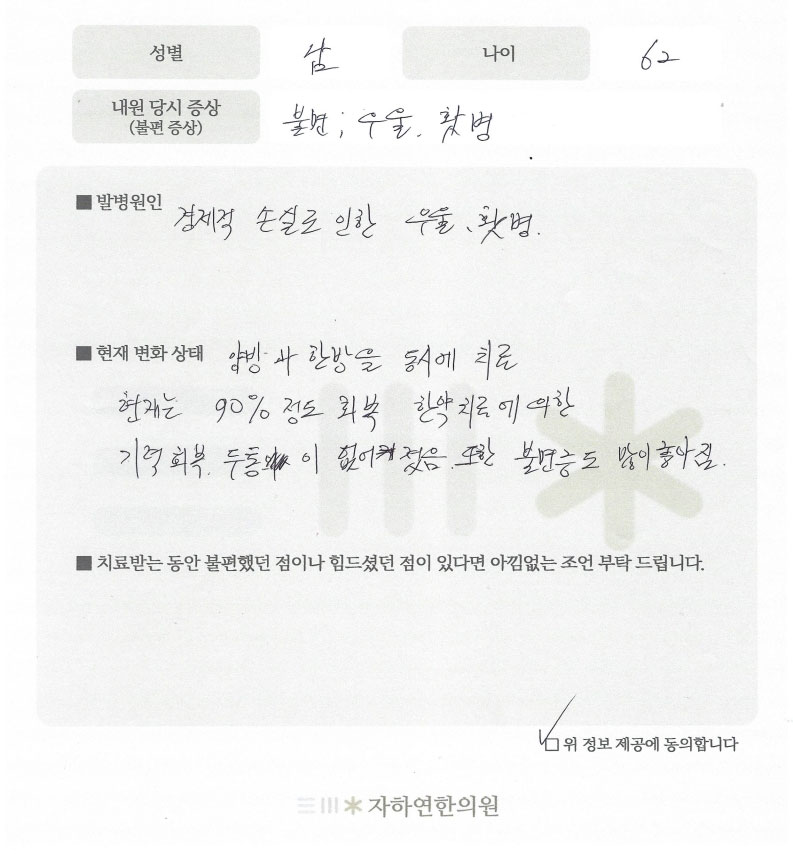 성별 남 나이 62
내원 당시 증상
(불편 증상)
불면; 우울. 홧병
■ 발병원인 경제적 손실로 인한 우울, 홧병.
■ 현재 변화 상태 양방과 한방을 동시에 치료
현재는 90% 정도 회복 한약치료에 의한
기력회복. 두통이 없어졌음. 또한 불면증도 많이 좋아짐.
■ 치료받는 동안 불편했던 점이나 힘드셨던 점이 있다면 아낌없는 조언 부탁 드립니다.
위 정보 제공에 동의합니다
자하연한의원